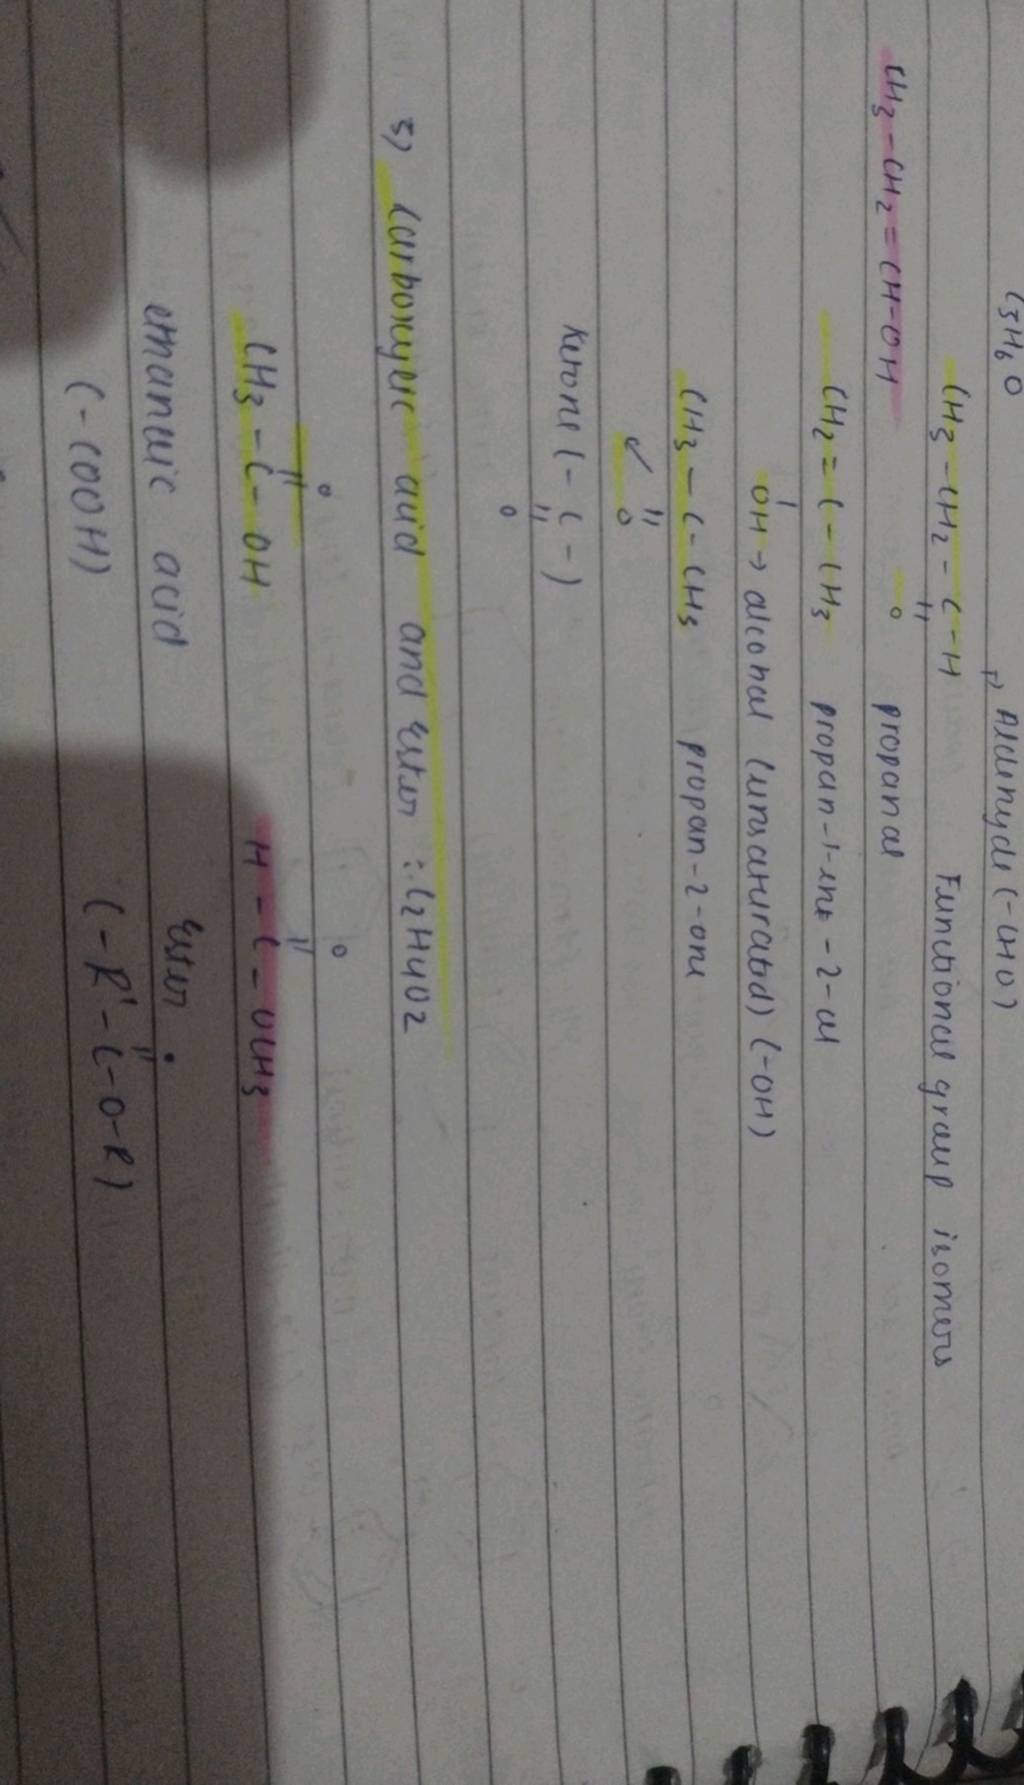 C3H6O
→ Aldehyde (-CHO)
CH3-CH2-C-H Functional group isomers
||
O propanal
CH3-CH2=CH-OH
CH2=C-CH3 propan-1-ene-2-ol
|
OH → alcohol (unsaturated) (-OH)
CH3-C-CH3 propan-2-one
||
↙ O
Ketone (-C-)
||
O
5) Carboxylic acid and Ester : C2H4O2
O O
|| ||
CH3-C-OH H-C-OCH3
ethanoic acid Ester
(-COOH) (-R'-C-O-R)